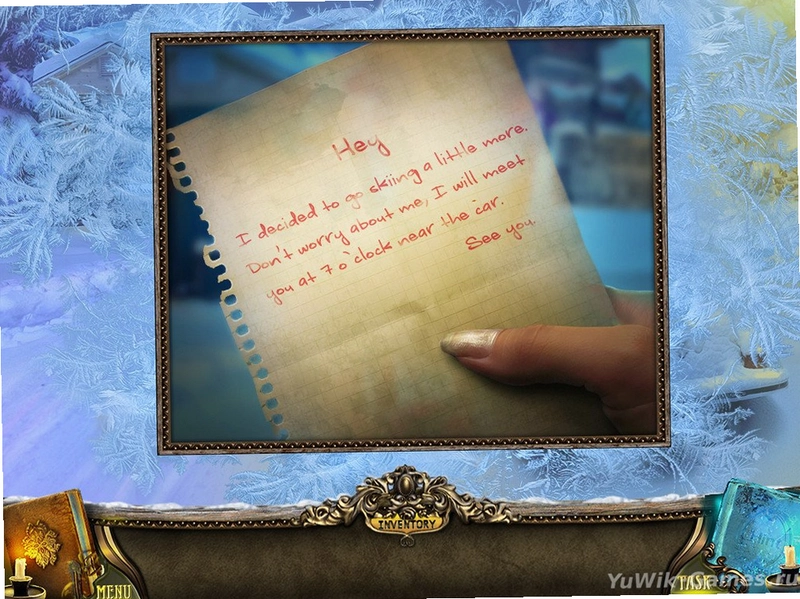 Hey
I decided to go skiing a little more.
Don't worry about me, I will meet
you at 7 o'clock near the car.
See you.
INVENTORY
MENU
TASK